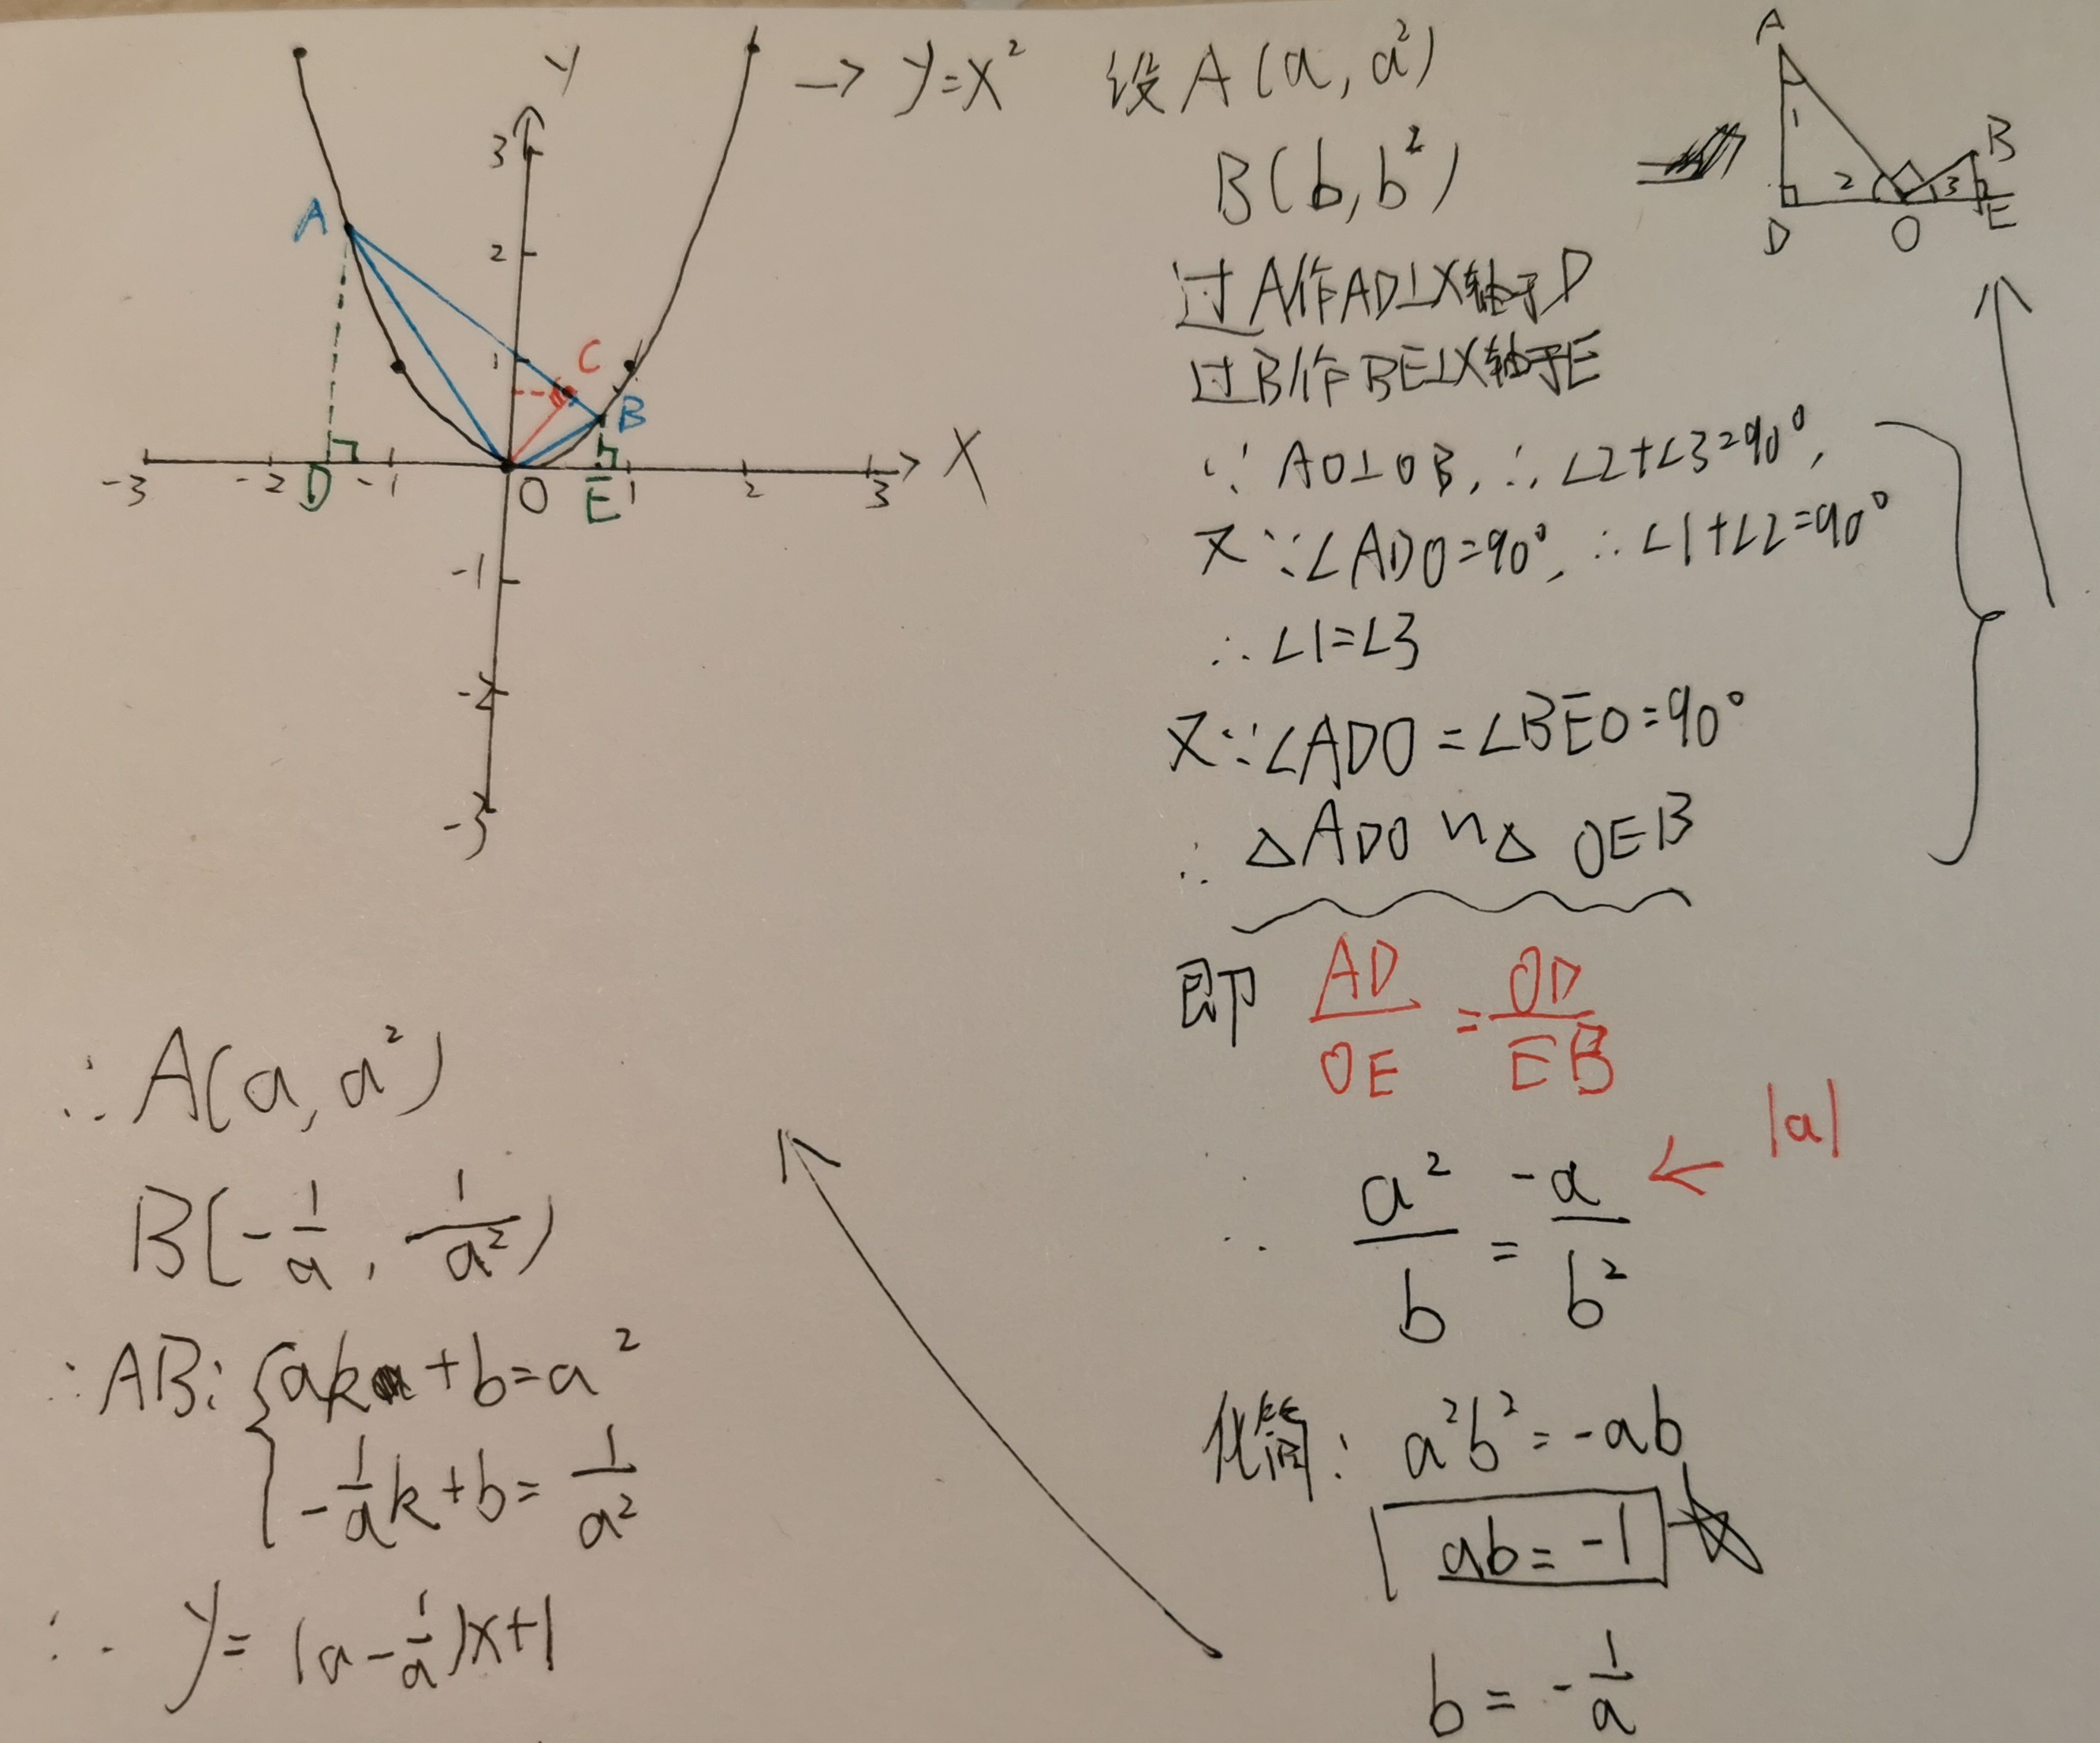 Y
→ y=x²
3
A
2
1
C
B
-3
-2
D
-1
O
E
1
2
3
X
-1
-2
-3
设A(a,a²)
B(b,b²)
过A作AD⊥X轴于D
过B作BE⊥X轴于E
∵AO⊥OB,∴∠2+∠3=90°,
又∵∠ADO=90°,∴∠1+∠2=90°
∴∠1=∠3
又∵∠ADO=∠BEO=90°
∴△ADO∽△OEB
A
1
B
2
3
D
O
E
即 AD/OE=OD/EB
∴ a²/b=-a/b² ← |a|
化简: a²b²=-ab
ab=-1
b=-1/a
∴A(a,a²)
B(-1/a,1/a²)
∴AB:{ak+b=a²
-1/ak+b=1/a²
∴y=(a-1/a)x+1